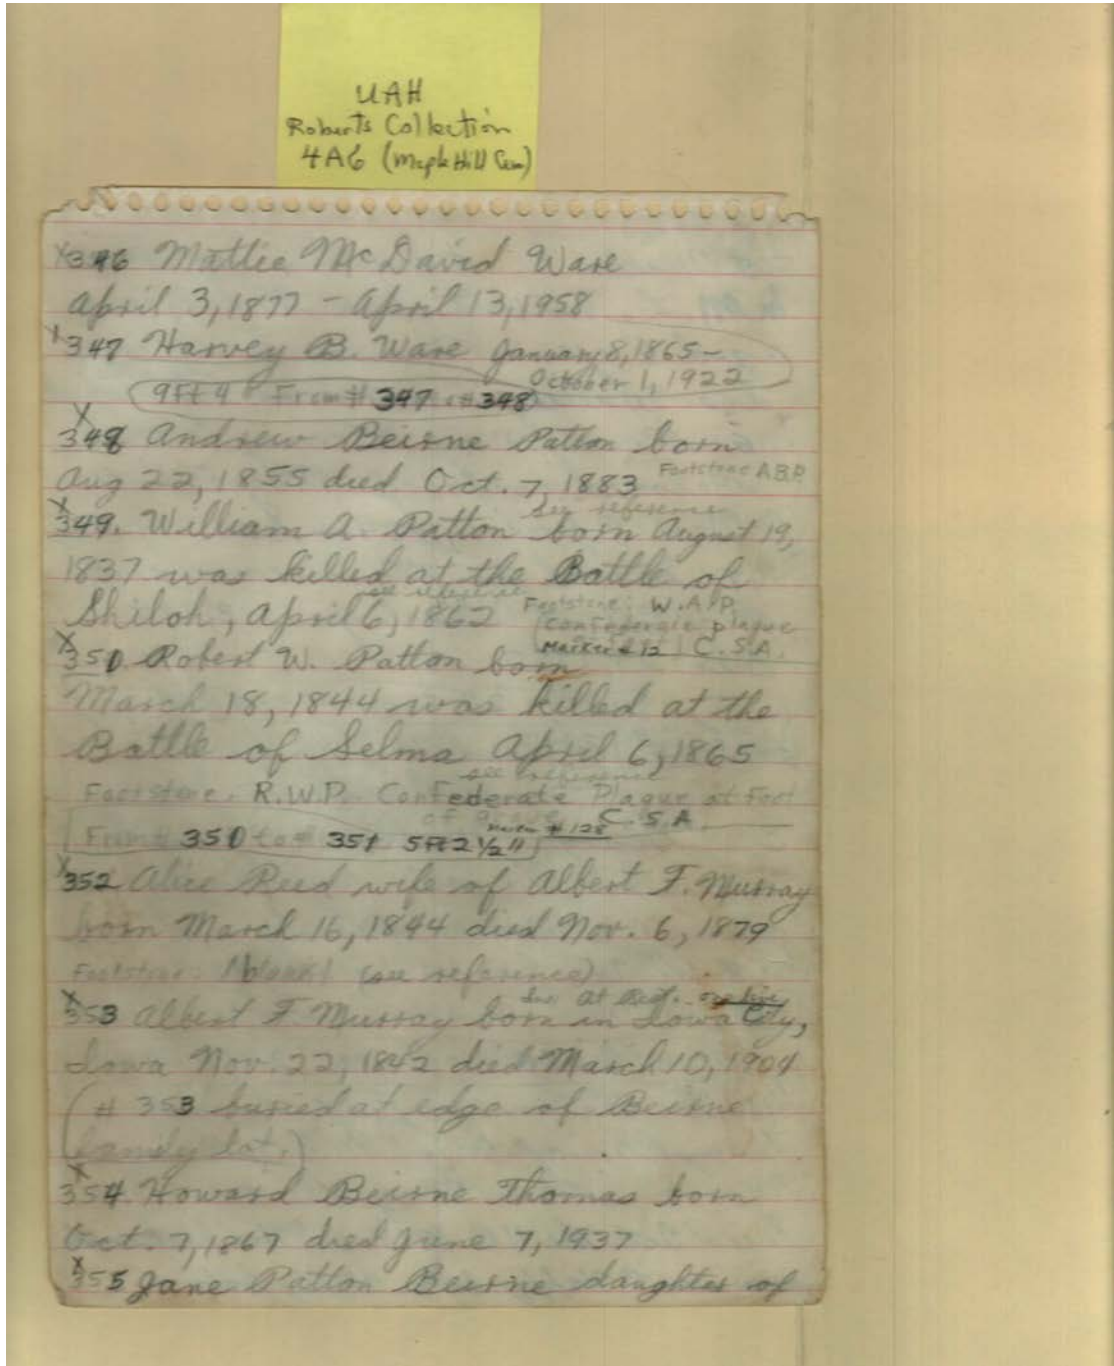 UAH
Roberts Collection
4A6 (Maple Hill Cem)
X346 Mattie McDavid Ware
April 3, 1877 - April 13, 1958
X347 Harvey B. Ware January 8, 1865 -
October 1, 1922
9Ft 4" From # 347 #348
X
348 Andrew Beirne Patton born
Aug 22, 1855 died Oct. 7, 1883 Footstone A.B.P.
see reference
X
349. William A. Patton born August 19,
1837 was killed at the Battle of
see reference
Shiloh, April 6, 1862 Footstone: W.A.P.
Confederate plaque
Marker # 12 C.S.A.
X
350 Robert W. Patton born
March 18, 1844 was killed at the
Battle of Selma April 6, 1865
see reference
Footstone. R.W.P. Confederate Plaque at Foot
of C.S.A.
# 128
From # 350 to # 351 5Ft 2 1/2"
X352 Alice Reed wife of Albert F. Murray
born March 16, 1844 died Nov. 6, 1879
Footstone: (see reference)
At
X
353 Albert F Murray born in Iowa City,
Iowa Nov. 22, 1842 died March 10, 1904
(# 353 buried at edge of Beirne
family lot.)
X
354 Howard Beirne Thomas born
Oct. 7, 1867 died June 7, 1937
X
355 Jane Patton Beirne daughter of